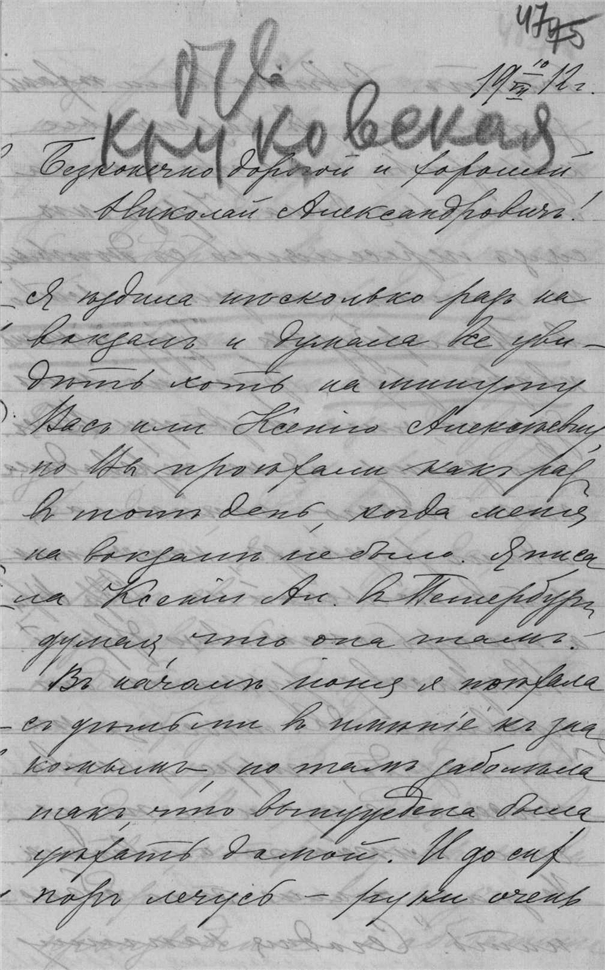 47 75
19 10/VII 12 г.
Круковская
Безконечно дорогой и хорошій
Николай Александровичъ!
Я ѣздила нѣсколько разъ на
вокзалъ и думала все уви-
дѣть хоть на минуту
Васъ или Ксенію Алексѣевну,
но Вы проѣхали какъ раз
въ тотъ день, когда меня
на вокзалѣ не было. Я писа
ла Ксеніи Ал. въ Петербург
думая, что она тамъ.
Въ началѣ іюня я поѣхала
съ дѣтьми въ имѣніе къ зна
комымъ, но тамъ заболѣла
такъ, что вынуждена была
уѣхать домой. И до сих
поръ лечусь – руки очень